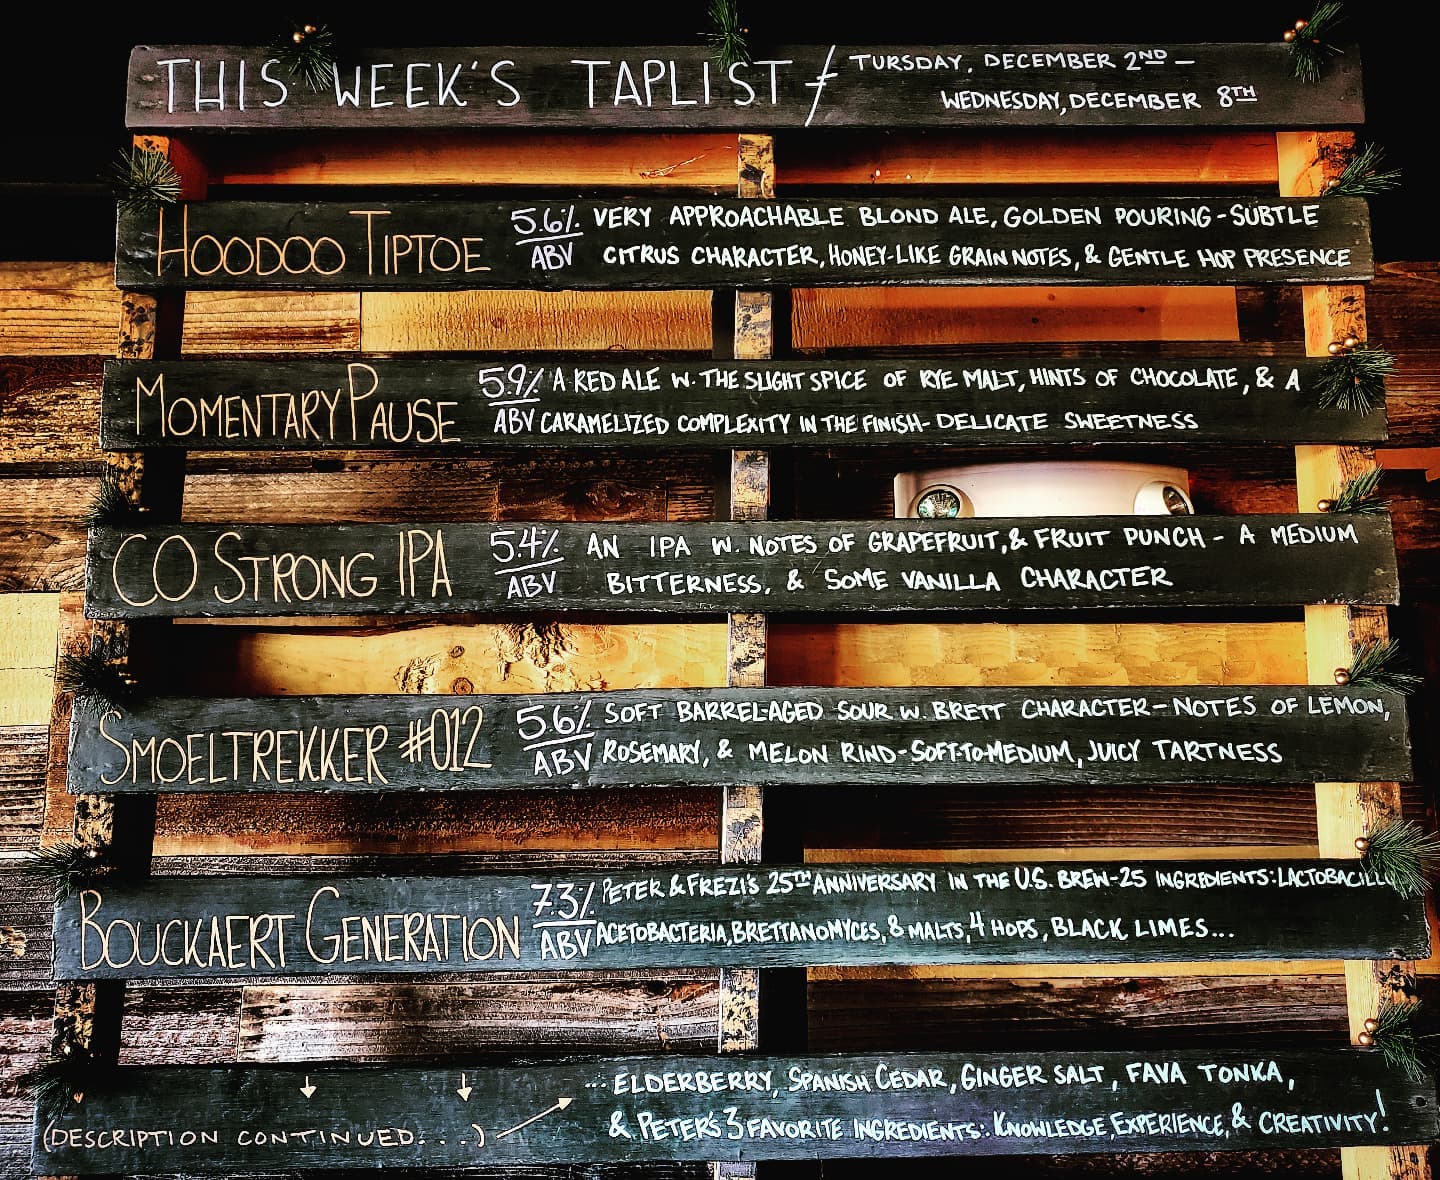 THIS WEEK'S TAPLIST / TURSDAY, DECEMBER 2ND –
WEDNESDAY, DECEMBER 8TH
HOODOO TIPTOE 5.6% ABV VERY APPROACHABLE BLOND ALE, GOLDEN POURING - SUBTLE
CITRUS CHARACTER, HONEY-LIKE GRAIN NOTES, & GENTLE HOP PRESENCE
MOMENTARY PAUSE 5.9% ABV A RED ALE W. THE SLIGHT SPICE OF RYE MALT, HINTS OF CHOCOLATE, & A
CARAMELIZED COMPLEXITY IN THE FINISH - DELICATE SWEETNESS
CO STRONG IPA 5.4% ABV AN IPA W. NOTES OF GRAPEFRUIT, & FRUIT PUNCH - A MEDIUM
BITTERNESS, & SOME VANILLA CHARACTER
SMOELTREKKER #012 5.6% ABV SOFT BARREL-AGED SOUR W. BRETT CHARACTER - NOTES OF LEMON,
ROSEMARY, & MELON RIND - SOFT-TO-MEDIUM, JUICY TARTNESS
BOUCKAERT GENERATION 7.3% ABV PETER & FREZI'S 25TH ANNIVERSARY IN THE U.S. BREW - 25 INGREDIENTS:
ACETOBACTERIA, BRETTANOMYCES, 8 MALTS, 4 HOPS, BLACK LIMES...
(DESCRIPTION CONTINUED...) ... ELDERBERRY, SPANISH CEDAR, GINGER SALT, FAVA TONKA,
& PETER'S 3 FAVORITE INGREDIENTS: KNOWLEDGE, EXPERIENCE, & CREATIVITY!